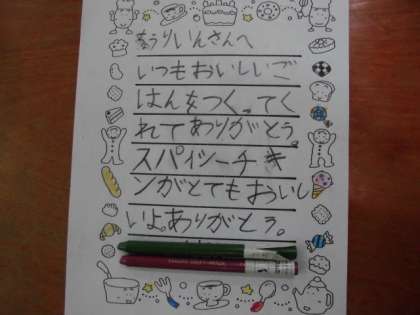 まりいんさんへ
いつもおいしいご
はんをつくってく
れてありがとう。
スパイシーチキ
ンがとてもおういし
いよ。ありがとう。